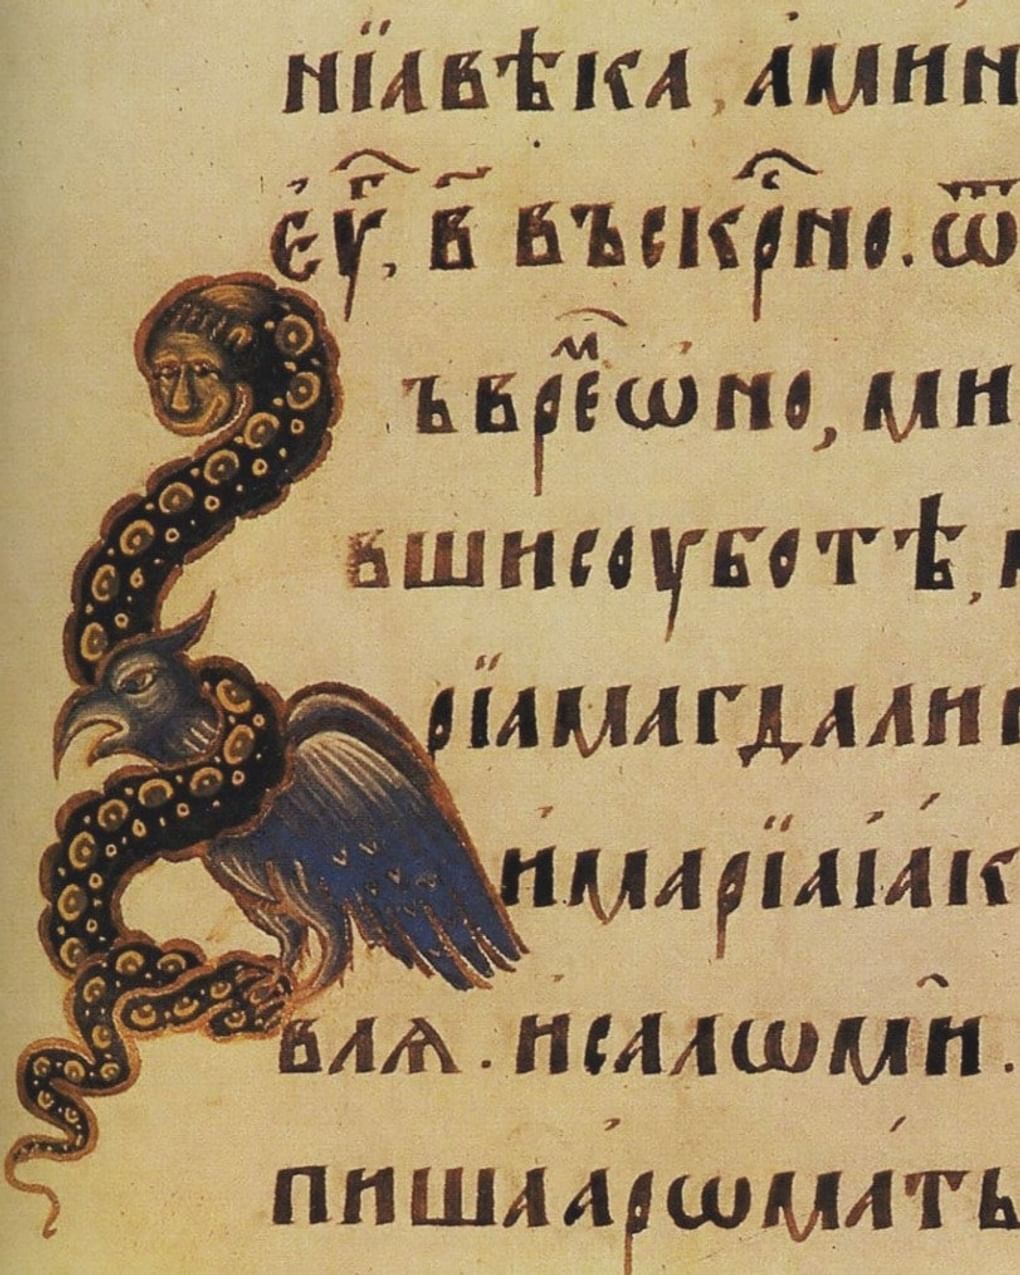 нїа вѣка, а҆мин
е҆ѵⷢ҇, в҃ въскрⷭ҇но. ѿ
ъ врⷨе҆ѡно, ми
вши соуботѣ,
рїа магдалин
и҆ марїа і҆а҆к
влѧ. и҆ саломи̑.
пиша а҆рѡматъ